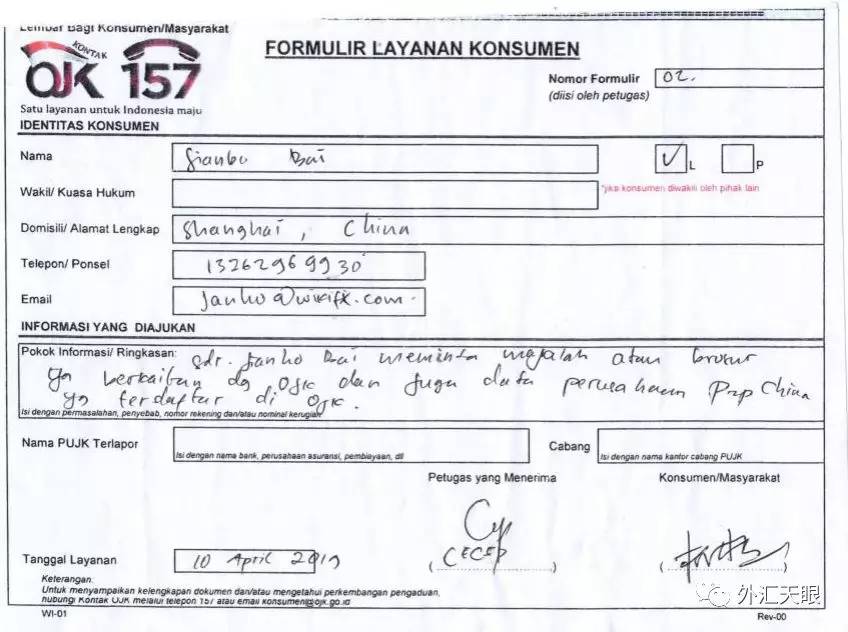 Lembar Bagi Konsumen/Masyarakat
KONTAK
OJK 157
Satu layanan untuk Indonesia maju
FORMULIR LAYANAN KONSUMEN
Nomor Formulir 02.
(diisi oleh petugas)
IDENTITAS KONSUMEN
Nama Jianbo Bai L P
Wakil/ Kuasa Hukum *jika konsumen diwakili oleh pihak lain
Domisili/ Alamat Lengkap Shanghai, China
Telepon/ Ponsel 13262969930
Email @wikifx.com
INFORMASI YANG DIAJUKAN
Pokok Informasi/ Ringkasan: Sdr. Bai meminta majalah atau brosur
yg berkaitan dg OJK dan juga data perusahaan China
yg terdaftar di OJK.
Isi dengan permasalahan, penyebab, nomor rekening dan/atau nominal kerugian
Nama PUJK Terlapor Cabang
Isi dengan nama bank, perusahaan asuransi, pembiayaan, dll Isi dengan nama kantor cabang PUJK
Petugas yang Menerima Konsumen/Masyarakat
Tanggal Layanan 10 April 2019 (CECEP) ( )
Keterangan:
Untuk menyampaikan kelengkapan dokumen dan/atau mengetahui perkembangan pengaduan,
hubungi Kontak OJK melalui telepon 157 atau email konsumen@ojk.go.id
WI-01 Rev-00
外汇天眼